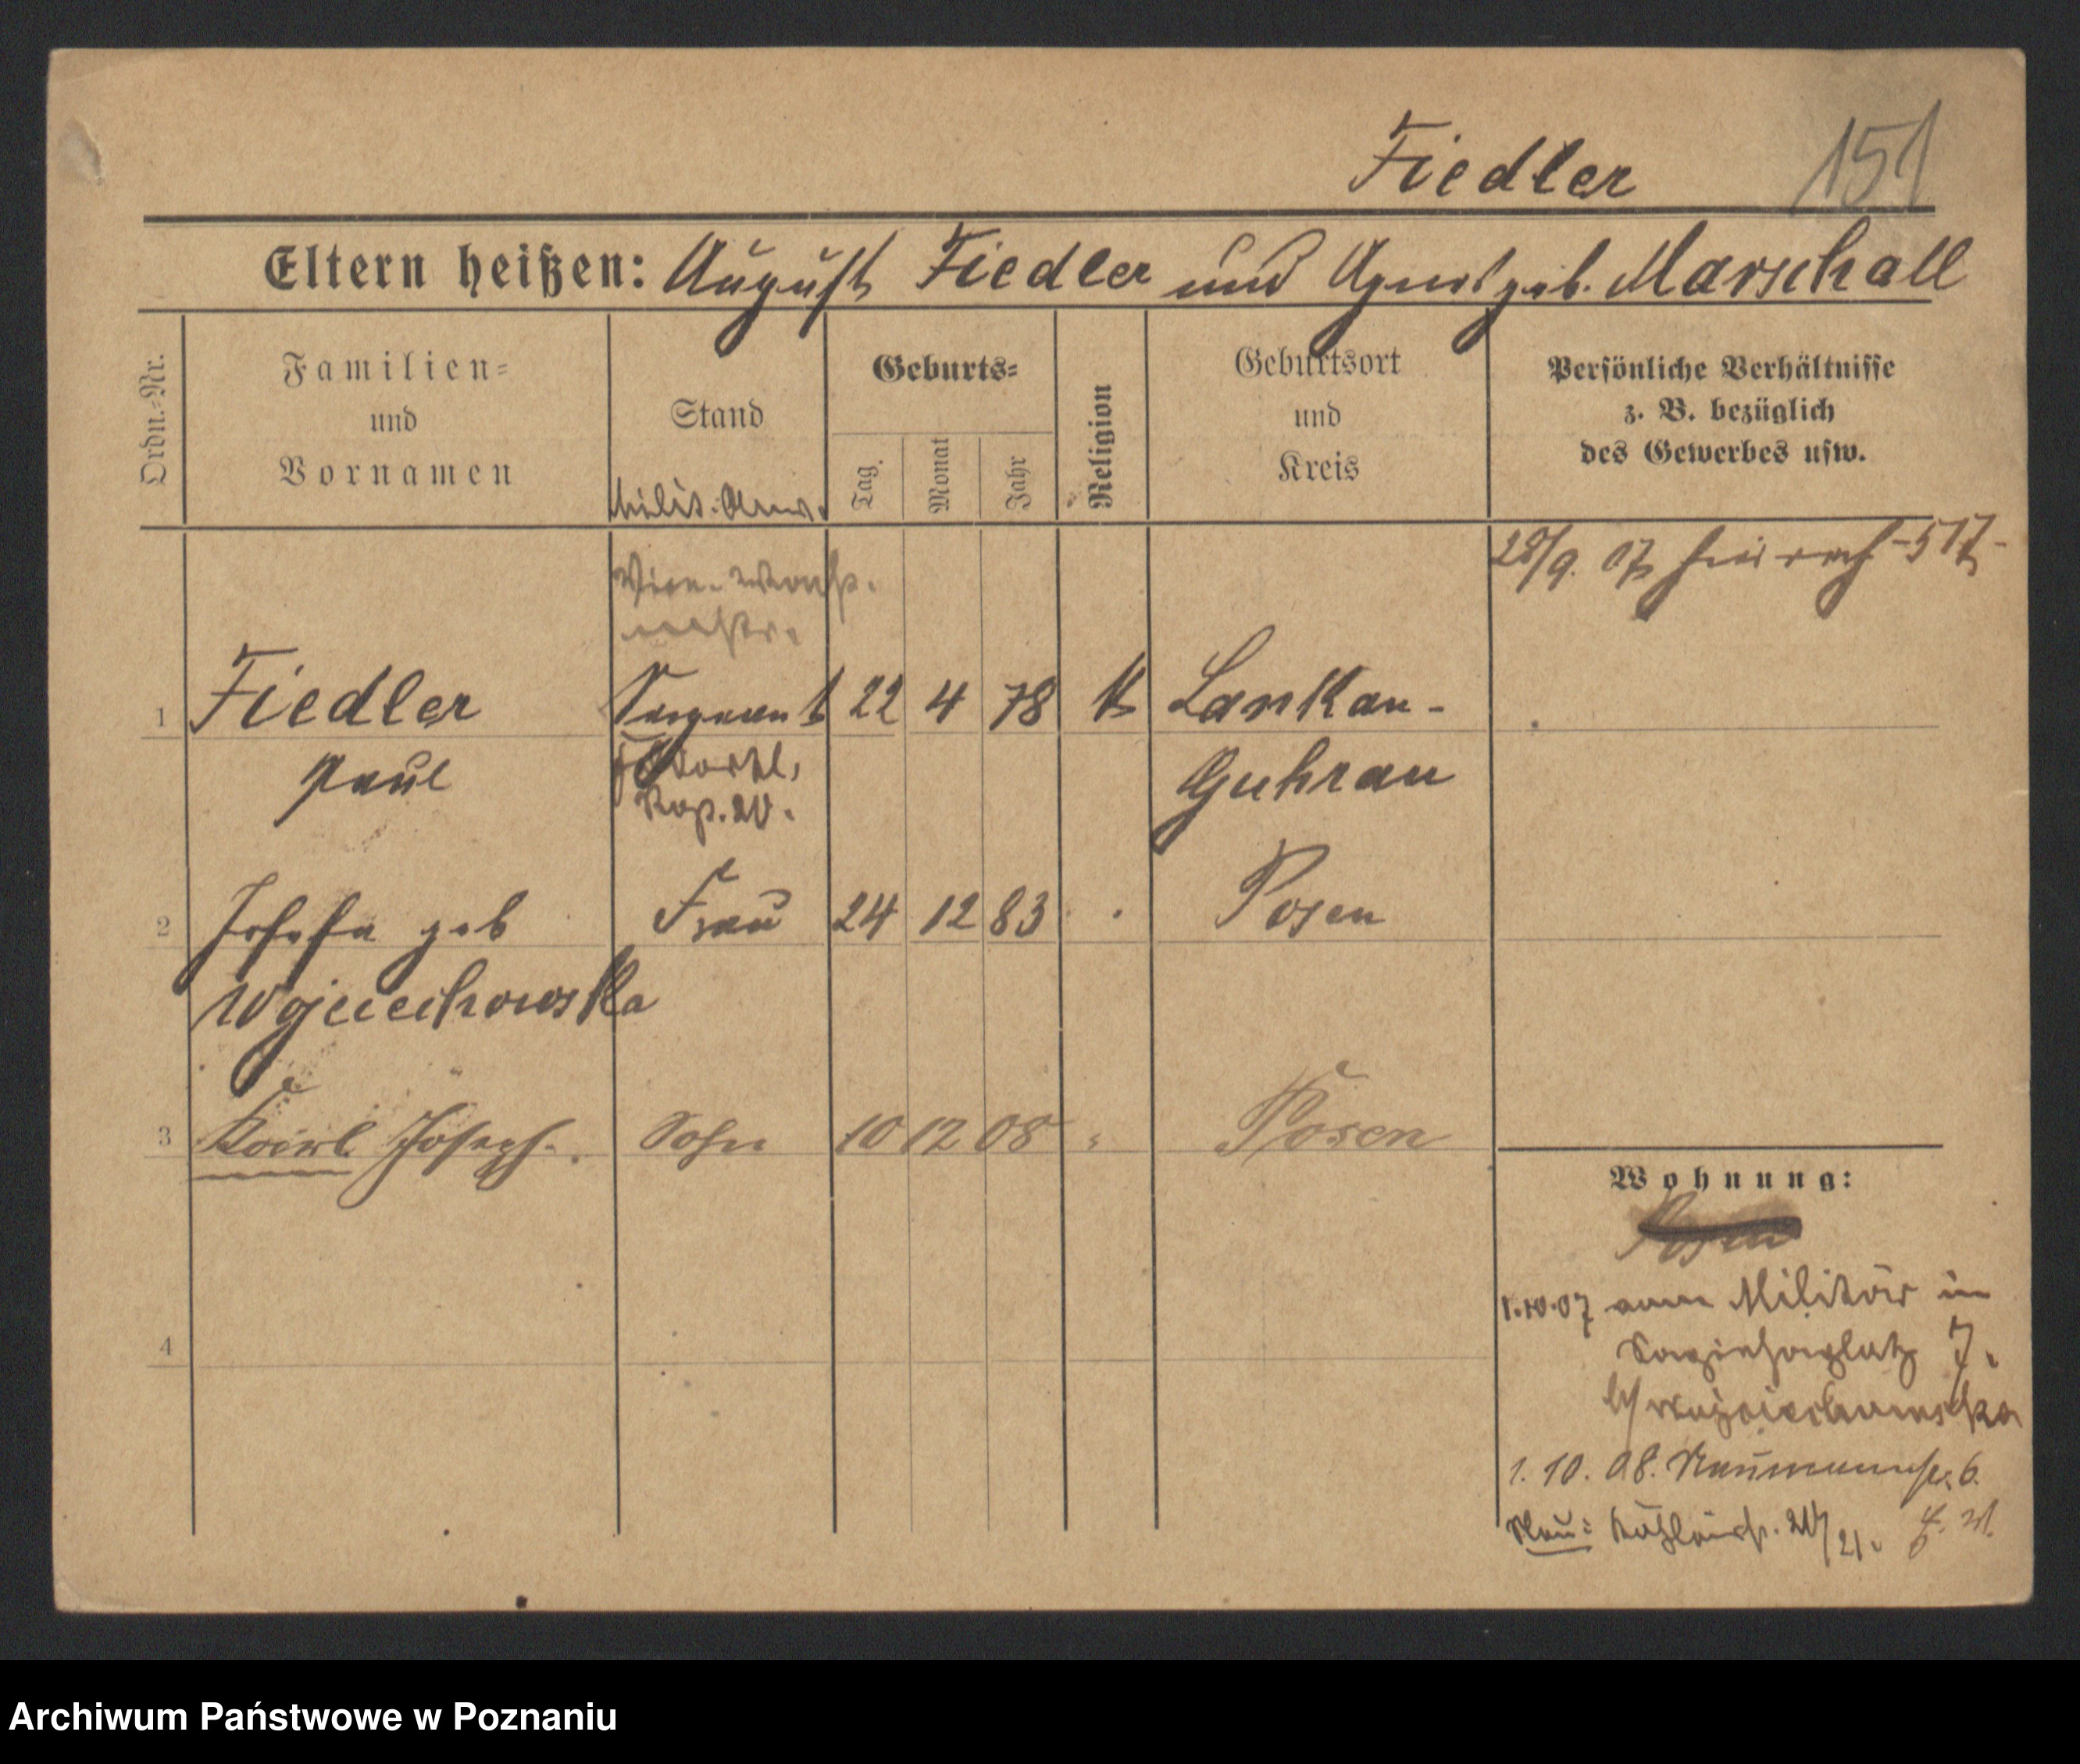 Fiedler 151
Eltern heißen: August Fiedler und Agnes geb. Marschall
Ordn.-Nr.
Familien-
und
Vornamen
Stand
Milit. Anw.
Geburts-
Tag.
Monat
Jahr
Religion
Geburtsort
und
Kreis
Persönliche Verhältnisse
z. B. bezüglich
des Gewerbes usw.
28/9. 07
Vice-Wacht-
mstr.
1 Fiedler Sergeant 22 4 78 K Lankau-
Paul Guhrau
2 Josefa geb Frau 24 12 83 Posen
Wojciechowska
3 Karl Joseph. Sohn 10 12 08 " Posen
Wohnung:
Posen
1.10.07 vom Militär in
Sapiehaplatz 7.
b/ Wojciechowska
1. 10. 08. Naumannstr. 6.
4
Neu: 20/21.
Archiwum Państwowe w Poznaniu